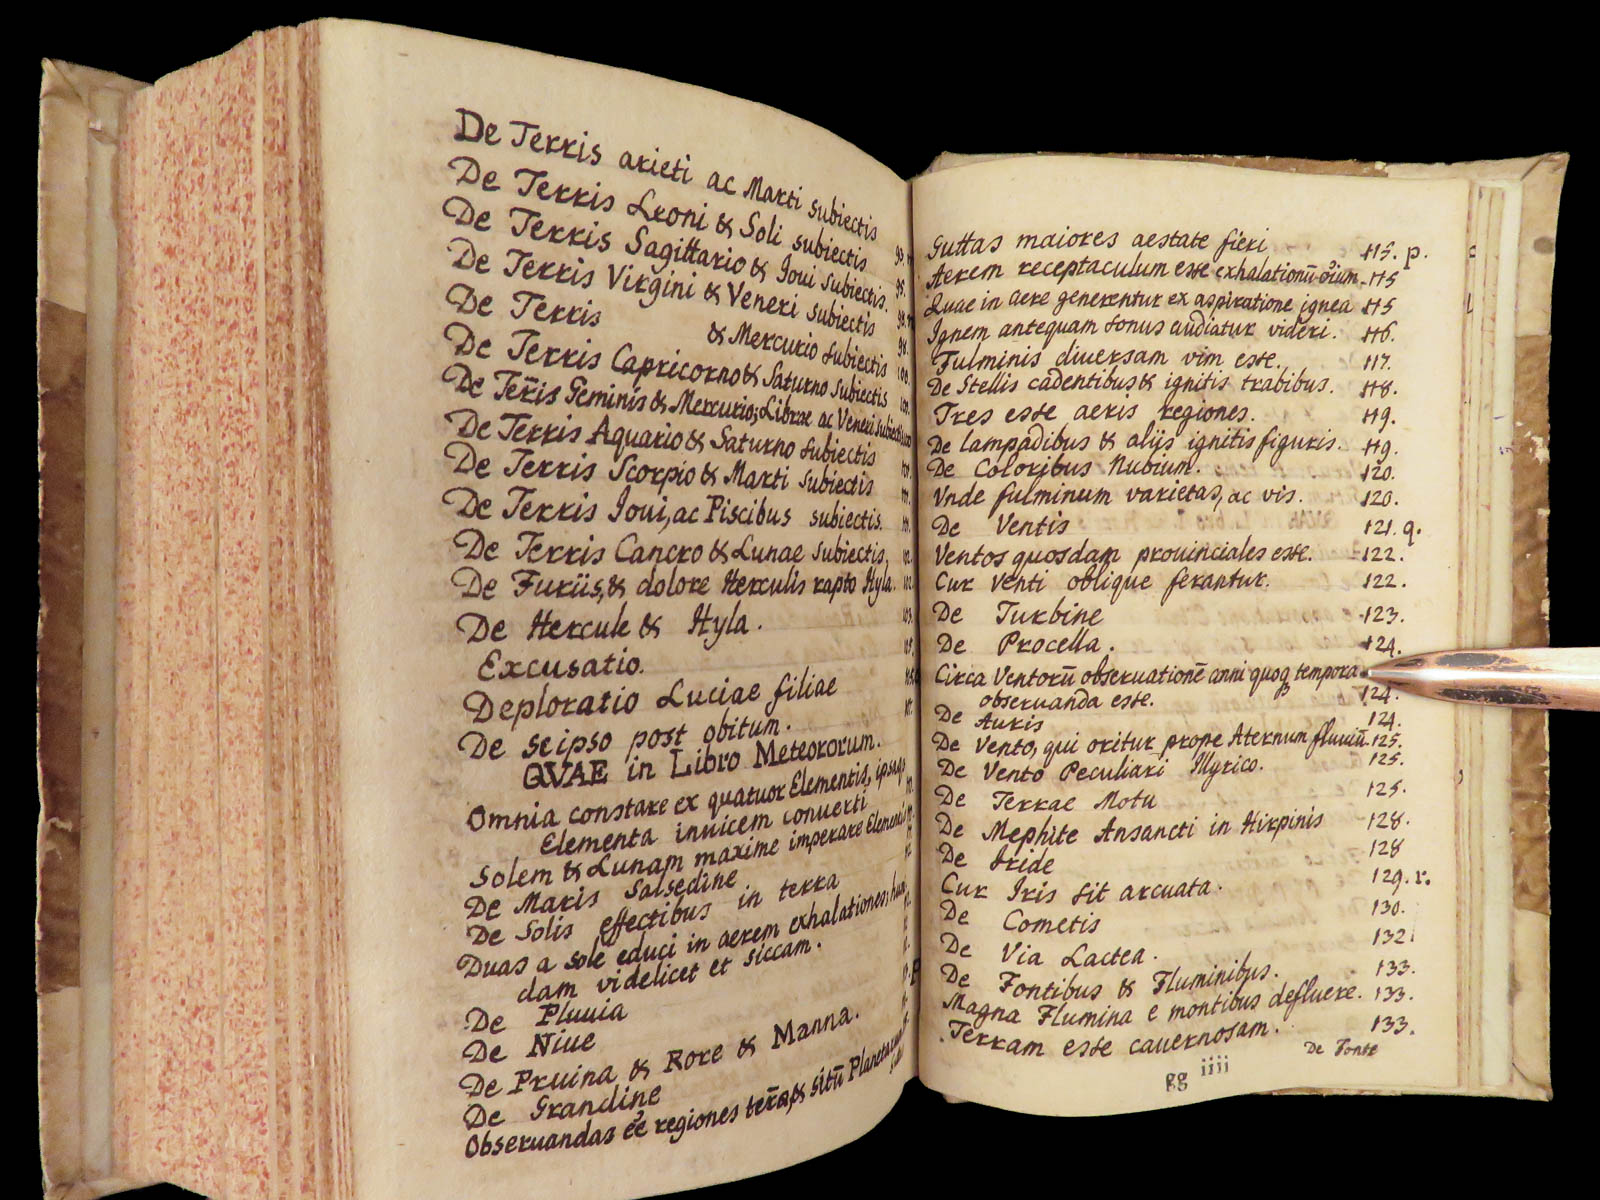 De Terris arieti ac Marti subiectis
De Terris Leoni & Soli subiectis
De Terris Sagittario & Ioui subiectis.
De Terris Virgini & Veneri subiectis
De Terris & Mercurio subiectis
De Terris Capricorno & Saturno subiectis
De Terris Geminis & Mercurio; Librae ac Veneri subiectis
De Terris Aquario & Saturno subiectis
De Terris Scorpio & Marti subiectis
De Terris Ioui, ac Piscibus subiectis.
De Terris Cancro & Lunae subiectis,
De Furiis, & dolore Herculis rapto Hyla.
De Hercule & Hyla.
Excusatio.
Deploratio Luciae filiae
De seipso post obitum.
QVAE in Libro Meteororum.
Omnia constare ex quatuor Elementis, ipsaq
Elementa inuicem conuerti
Solem & Lunam maxime imperare Elementis
De Maris Salsedine
De Solis effectibus in terra
Duas a sole educi in aerem exhalationes; humi
dam videlicet et siccam.
De Pluuia
De Niue
De Pruina & Rore & Manna.
De Grandine
Obseruandas eē regiones terrā & sitū Planetarum
Guttas maiores aestate fieri 115. p.
Aerem receptaculum esse exhalationū oīum. 115
Quae in aere generentur ex aspiratione ignea 115
Ignem antequam sonus audiatur videri. 116.
Fulminis diuersam vim esse. 117.
De Stellis cadentibus & ignitis trabibus. 118.
Tres esse aeris regiones. 119.
De lampadibus & aliis ignitis figuris. 119.
De Coloribus Nubium. 120.
Vnde fulminum varietas, ac vis. 120.
De Ventis 121. q.
Ventos quosdam prouinciales esse. 122.
Cur Venti oblique ferantur. 122.
De Turbine 123.
De Procella. 124.
Circa Ventorū obseruationē anni quoq tempora
obseruanda esse. 124.
De Auris 124.
De Vento, qui oritur prope Aternum fluuiū. 125.
De Vento Peculiari Illyrico. 125.
De Terrae Motu 125.
De Mephite Ansancti in Hirpinis 128.
De Iride 128
Cur Iris sit arcuata. 129. r.
De Cometis 130.
De Via Lactea. 132
De Fontibus & Fluminibus. 133.
Magna Flumina e montibus defluere. 133.
Terram esse cauernosam. 133.
De Fonte
gg iiii